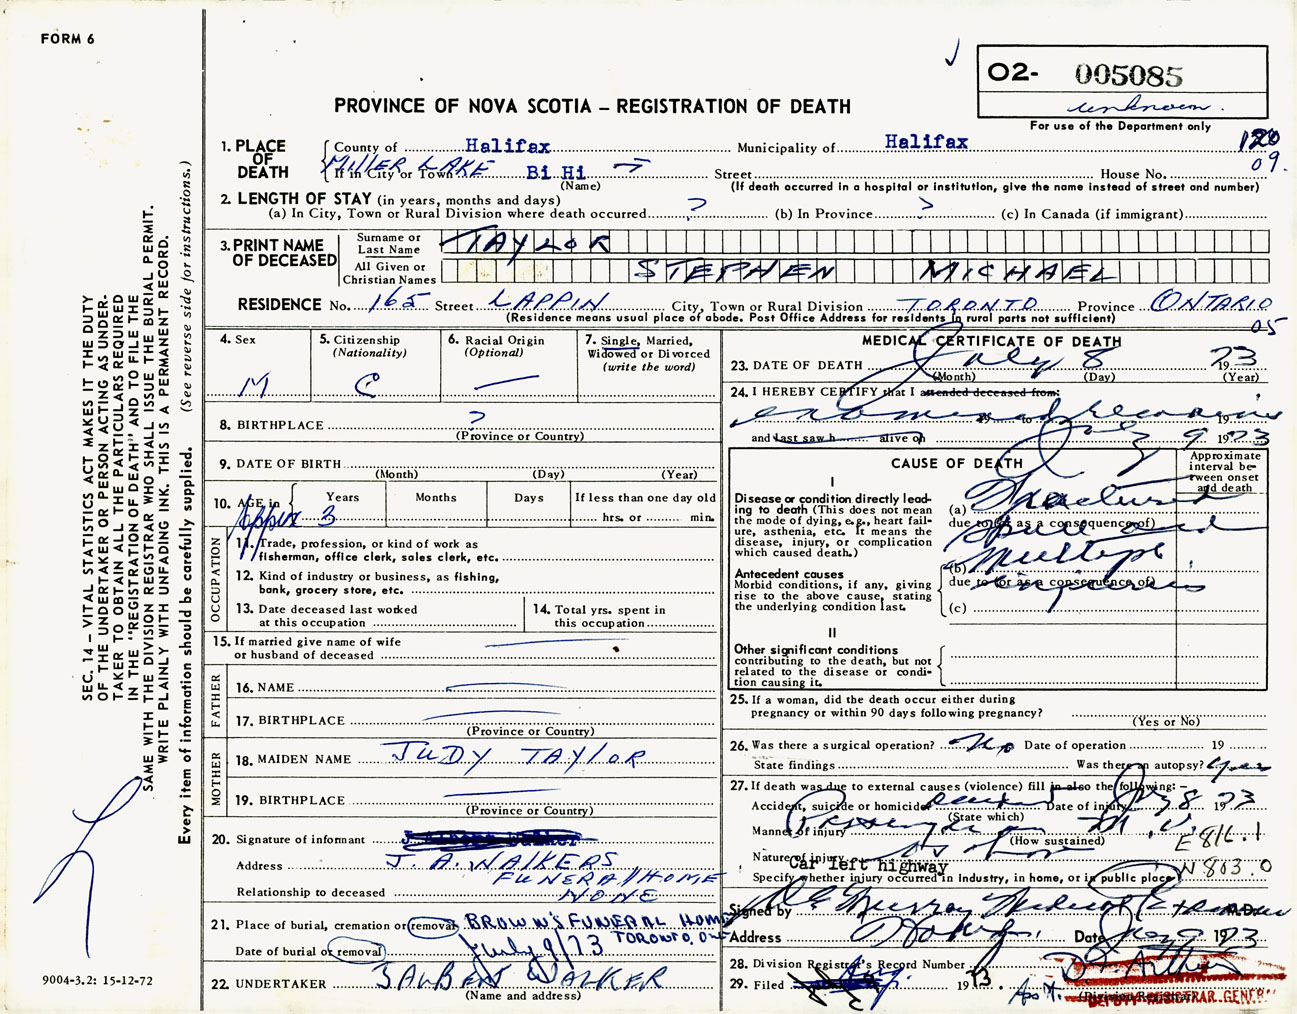 FORM 6
O2- 005085
unknown.
For use of the Department only
PROVINCE OF NOVA SCOTIA – REGISTRATION OF DEATH
1. PLACE OF DEATH
County of Halifax Municipality of Halifax
MILLER LAKE
If in City or Town Bi Hi Street House No. 09.
(Name) (If death occurred in a hospital or institution, give the name instead of street and number)
2. LENGTH OF STAY (in years, months and days)
(a) In City, Town or Rural Division where death occurred ? (b) In Province ? (c) In Canada (if immigrant)
3. PRINT NAME OF DECEASED
Surname or Last Name TAYLOR
All Given or Christian Names STEPHEN MICHAEL
RESIDENCE No. 165 Street LAPPIN City, Town or Rural Division TORONTO Province ONTARIO
(Residence means usual place of abode. Post Office Address for residents in rural parts not sufficient) 05
4. Sex M
5. Citizenship (Nationality) C
6. Racial Origin (Optional) —
7. Single, Married, Widowed or Divorced (write the word)
8. BIRTHPLACE ?
(Province or Country)
9. DATE OF BIRTH
(Month) (Day) (Year)
10. AGE in Years Months Days If less than one day old
Approx 3 hrs. or min.
OCCUPATION
11. Trade, profession, or kind of work as fisherman, office clerk, sales clerk, etc.
12. Kind of industry or business, as fishing, bank, grocery store, etc.
13. Date deceased last worked at this occupation
14. Total yrs. spent in this occupation
15. If married give name of wife or husband of deceased
FATHER
16. NAME
17. BIRTHPLACE
(Province or Country)
MOTHER
18. MAIDEN NAME JUDY TAYLOR
19. BIRTHPLACE
(Province or Country)
20. Signature of informant
Address J. A. WALKERS
FUNERAL HOME
Relationship to deceased NONE
21. Place of burial, cremation or removal BROWN'S FUNERAL HOME
TORONTO, ONT
Date of burial or removal July 9/73
22. UNDERTAKER J ALBERT WALKER
(Name and address)
MEDICAL CERTIFICATE OF DEATH
23. DATE OF DEATH July 8 1973
(Month) (Day) (Year)
24. I HEREBY CERTIFY that I attended deceased from:
examined remains 19 to 19
and last saw h alive on July 9 1973
CAUSE OF DEATH
Approximate interval between onset and death
I
Disease or condition directly leading to death (This does not mean the mode of dying, e.g., heart failure, asthenia, etc. It means the disease, injury, or complication which caused death.)
(a) Fractured
due to (or as a consequence of)
skull and
multiple
Antecedent causes
Morbid conditions, if any, giving rise to the above cause, stating the underlying condition last.
(b)
due to (or as a consequence of)
injuries
(c)
II
Other significant conditions
contributing to the death, but not related to the disease or condition causing it.
25. If a woman, did the death occur either during pregnancy or within 90 days following pregnancy?
(Yes or No)
26. Was there a surgical operation? No Date of operation 19
State findings Was there an autopsy? yes
27. If death was due to external causes (violence) fill in also the following: –
Accident, suicide or homicide accident Date of injury July 8 1973
(State which)
Manner of injury Passenger in M.V. E 816.1
(How sustained)
Nature of injury N 803.0
Car left highway
Specify whether injury occurred in Industry, in home, or in public place
Signed by Murray Medical Examiner M.D.
Address Date July 9 1973
28. Division Registrar's Record Number
29. Filed 1973.
(Division Registrar)
DEPUTY REGISTRAR GENERAL
SEC. 14 – VITAL STATISTICS ACT MAKES IT THE DUTY
OF THE UNDERTAKER OR PERSON ACTING AS UNDER-
TAKER TO OBTAIN ALL THE PARTICULARS REQUIRED
IN THE "REGISTRATION OF DEATH" AND TO FILE THE
SAME WITH THE DIVISION REGISTRAR WHO SHALL ISSUE THE BURIAL PERMIT.
WRITE PLAINLY WITH UNFADING INK. THIS IS A PERMANENT RECORD.
Every item of information should be carefully supplied. (See reverse side for instructions.)
9004-3.2: 15-12-72